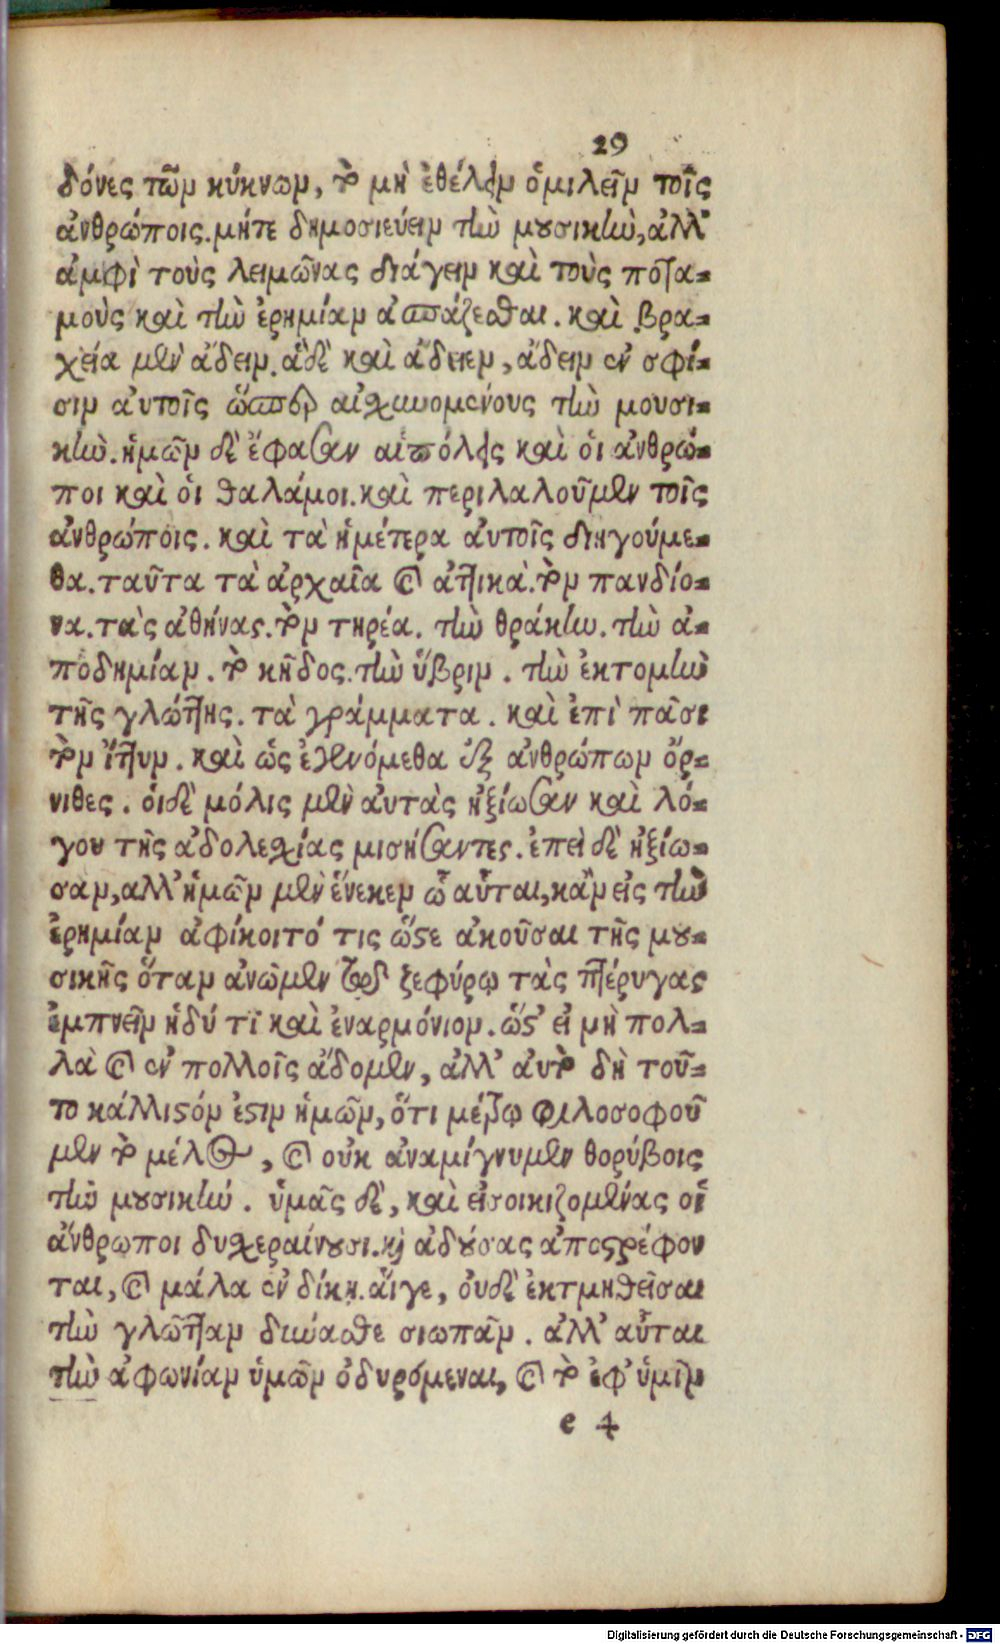 29
δόνες τῶν κύκνων, τὸ μὴ ἐθέλειν ὁμιλεῖν τοῖς
ἀνθρώποις. μήτε δημοσιεύειν τὴν μουσικὴν, ἀλλ᾽
ἀμφὶ τοὺς λειμῶνας διάγειν καὶ τοὺς ποτα-
μοὺς καὶ τὴν ἐρημίαν ἀσπάζεσθαι. καὶ βρα-
χεία μὲν ἄδειν. ἃ δὲ καὶ ἄδειεν, ἄδειν ἐν σφί-
σιν αὐτοῖς ὥσπερ αἰσχυνομένους τὴν μουσι-
κὴν. ἡμῶν δὲ ἔφασαν αἱ πόλεις καὶ ὁι ἀνθρώ-
ποι καὶ ὁι θαλάμοι. καὶ περιλαλοῦμεν τοῖς
ἀνθρώποις. καὶ τὰ ἡμέτερα ἀυτοῖς διηγούμε-
θα. ταῦτα τὰ ἀρχαῖα καὶ ἀττικὰ. τὸν πανδίο-
να. τὰς ἀθήνας. τὸν τηρέα. τὴν θράκην. τὴν ἀ-
ποδημίαν. τὸ κῆδος. τὴν ὕβριν. τὴν ἐκτομὴν
τῆς γλώττης. τὰ γράμματα. καὶ ἐπὶ πᾶσι
τὸν ἴτυν. καὶ ὡς ἐγενόμεθα ἐξ ἀνθρώπων ὄρ-
νιθες. ὁι δὲ μόλις μὲν ἀυτὰς ἠξίωσαν καὶ λό-
γου τῆς ἀδολεσχίας μισήσαντες. ἐπεὶ δὲ ἠξίω-
σαν, ἀλλ᾽ ἡμῶν μὲν ἕνεκεν ὦ αὗται, κἂν εἰς τὴν
ἐρημίαν ἀφίκοιτό τις ὥστε ἀκοῦσαι τῆς μου-
σικῆς ὅταν ἀνῶμεν τῷ ζεφύρῳ τὰς πτέρυγας
ἐμπνεῖν ἡδύ τὶ καὶ ἐναρμόνιον. ὥστ᾽ εἰ μὴ πολ-
λὰ καὶ ἐν πολλοῖς ἄδομεν, ἀλλ᾽ ἀυτὸ δὴ τοῦ-
το κάλλιστόν ἐστιν ἡμῶν, ὅτι μέτρῳ φιλοσοφοῦ
μεν τὸ μέλος, καὶ οὐκ ἀναμίγνυμεν θορύβοις
τὴν μουσικήν. ὑμᾶς δὲ, καὶ εἰσοικιζομένας οἱ
ἄνθρωποι δυχεραίνουσι. καὶ ἀδούσας ἀποστρέφον
ται, καὶ μάλα ἐν δίκῃ. αἵ γε, ὀυδὲ ἐκτμηθεῖσαι
τὴν γλῶτταν δύνασθε σιωπᾶν. ἀλλ᾽ αὗται
τὴν ἀφωνίαν ὑμῶν ὀδυρόμεναι, καὶ τὸ ἐφ᾽ ὑμῖν
e 4
Digitalisierung gefördert durch die Deutsche Forschungsgemeinschaft - DFG